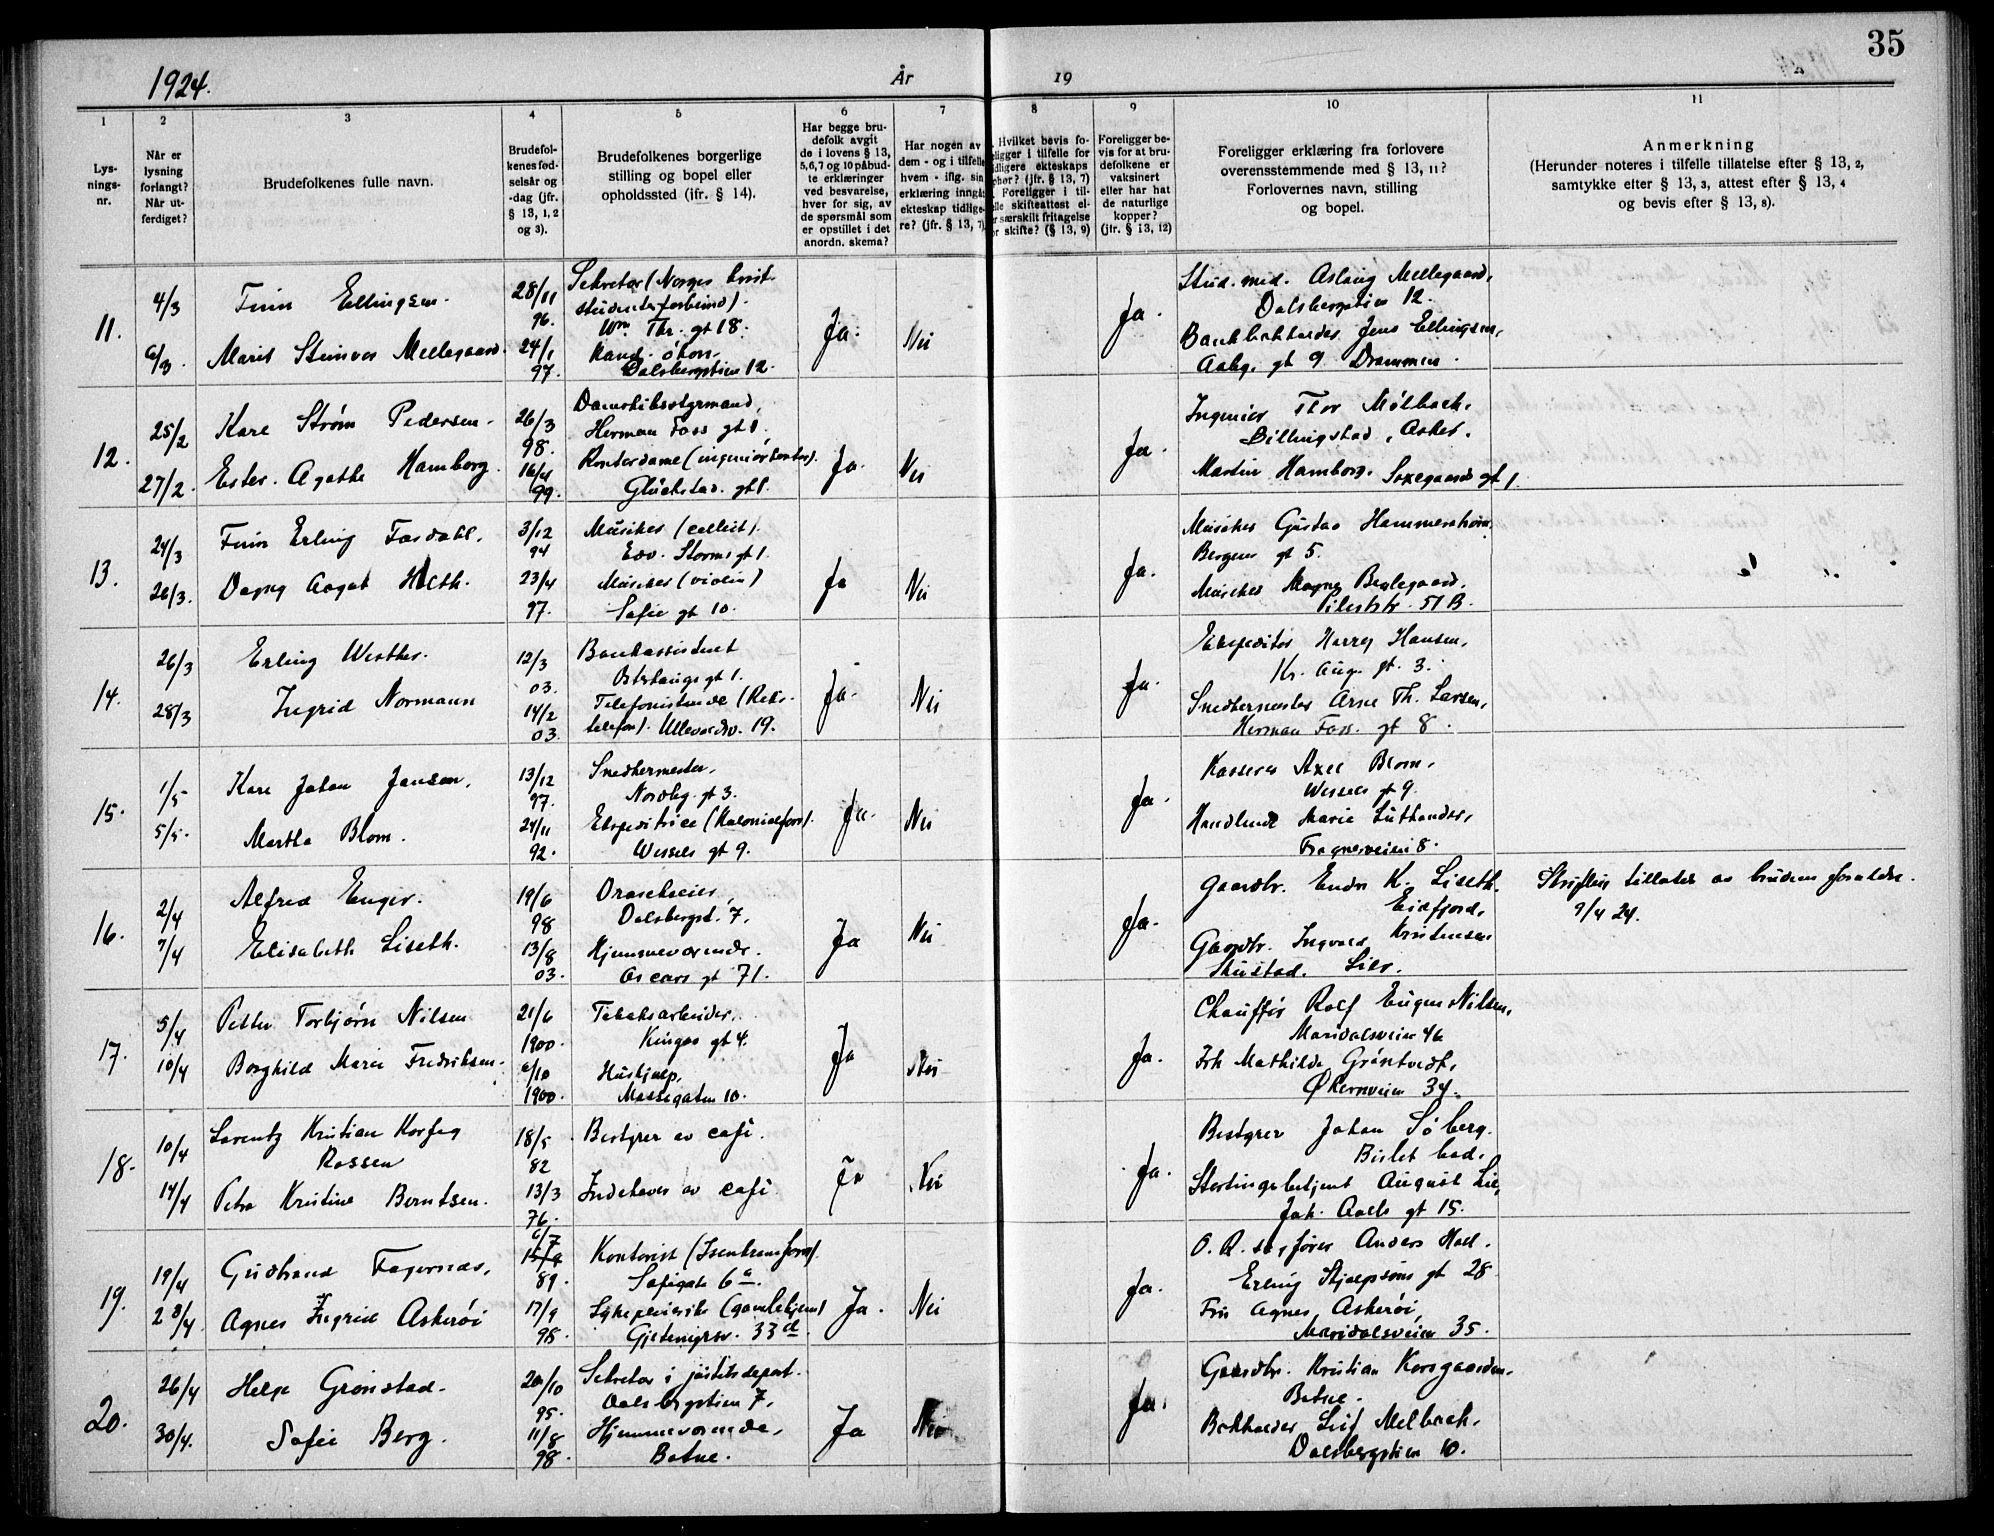 35
1924.
År
19
1
2
3
4
5
6
7
8
9
10
11
Lys-
nings-
nr.
Når er
lysning
forlangt?
Når ut-
ferdiget?
Brudefolkenes fulle navn.
Brudefol-
kenes fød-
selsår og
-dag (jfr.
§ 13, 1, 2
og 3).
Brudefolkenes borgerlige
stilling og bopel eller
opholdssted (jfr. § 14).
Har begge bru-
defolk avgit
de i lovens § 13,
5,6,7 og 10 påbud-
te erklæringer
ved besvarelse,
hver for sig, av
de spørsmål som
er opstillet i det
anordn. skema?
Har nogen av
dem - og i tilfelle
hvem - iflg. sin
erklæring inngåt
ekteskap tidlige-
re? (jfr. § 13, 7)
Hvilket bevis fo-
ligger i tilfelle for
dligere ekteskaps
phør? (jfr. § 13, 7)
Foreligger i til-
elle skifteattest el-
r særskilt fritagelse
or skifte? (§ 13, 9)
Foreligger be-
vis for at bru-
defolkene er
vaksinert
eller har hat
de naturlige
kopper?
(jfr. § 13, 12)
Foreligger erklæring fra forlovere
overensstemmende med § 13, 11?
Forlovernes navn, stilling
og bopel.
Anmerkning
(Herunder noteres i tilfelle tillatelse efter § 13, 2,
samtykke efter § 13, 3, attest efter § 13, 4
og bevis efter § 13, 8).
11.
4/3
6/3
Finn Ellingsen.
Marit Steinvor Mellegaard.
28/11
96.
24/1
97.
Sekretær (Norges krist.
studenterforbund).
Wm. Thr. gt 18.
Kand. økon.
Dalsbergstien 12.
Ja.
Nei
Ja.
Stud. med. Aslaug Mellegaard,
Dalsbergstien 12.
Bankbokholder Jens Ellingsen,
gt 9 Drammen.
12.
25/2
27/2.
Kare Strøm Pedersen.
Ester Agathe Hamborg.
26/3
98.
16/4
99.
Dampskibsstyrmand,
Herman Foss gt 1.
Kontordame (ingeniørkontor).
Glückstad. gt 1.
Ja.
Nei
Ja.
Ingeniør Thor Mølbach,
Billingstad, Asker.
Martin Hamborg. gt 1.
13.
24/3
26/3.
Finn Erling Fosdahl.
Dagny Aagot Holth.
3/12
94
23/4
97.
Musiker (cellist).
Edv. Storms gt 1.
Musiker (violin)
Sofie gt 10.
Ja
Nei
Ja.
Musiker Gustav Hammerstrøm,
Bergens gt 5.
Musiker Magne
Pilestr. 51 B.
14.
26/3
28/3
Erling Wester.
Ingrid Normann
12/3
03.
14/2
03.
Bankassistent
gt 1.
Telefonistinde (Riks-
telefon). Ullevaalsv. 19.
Ja.
Nei
Ja.
Ekspeditør Harry Hansen,
Kr. Aug. gt. 3.
Snedkermester Arne Th. Larsen,
Herman Foss. gt 8.
15.
1/5
5/5.
Kare Johan Jansen.
Martha Blom.
13/12
97.
24/11
92.
Snedkermester,
Nordbg. gt 3.
Ekspeditrice (Kolonialforr).
Wessels gt 9.
Ja.
Nei
Ja.
Kasserer Axel Blom,
Wessels gt 9.
Marie Luthander,
Frognerveien 8.
16.
2/4
7/4
Alfred Enger.
Elisabeth Liseth.
19/6
98
13/8
03.
Droscheeier,
Dalsbergst. 7,
Hjemmeværende.
Oscars gt 71.
Ja
Nei
Ja.
Gaardbr. Endre K. Liseth.
Eidfjord,
Gaardbr. Ingvald Kristensen
Lier.
Skriftlig tillatelse av brudens foreldre.
9/4 24.
17.
5/4
10/4
Petter Torbjørn Nilsen
Borghild Marie Fredriksen.
21/6
1900.
6/10
1900.
Tobaksarbeider.
Kingos gt 4.
Hushjælp,
Mossegaten 10.
Ja
Nei
Ja.
Chauffør Rolf Eugen Nilsen,
Maridalsveien 46
Frk Mathilde Grøntvedt,
Økernveien 34.
18.
10/4
14/4
Lorentz Kristian Korfeg
Rossen
Petra Kristine Berntsen.
18/5
82
13/3
76.
Bestyrer av café.
Indehaver av café.
Ja
Nei
Ja.
Bestyrer Johan Søberg.
Bislet bad.
Stortingsbetjent August Lie,
Joh. Aalls gt 15.
19.
19/4
28/4
Gudbrand Fagernæs,
Agnes Ingrid Askerøi
6/7
15/9
89.
17/9
98.
Kontorist (Isenkramforr).
Sofiegate 6a.
Sykepleierske (gamlehjem)
Gjetemyrsv. 33d
Ja.
Nei
Ja.
O. R. sagfører Anders Hall.
Erling Skjalgsøns gt 28
Fru Agnes Askerøi,
Maridalsveien 35.
20.
26/4
30/4.
Helge Grønstad.
Sofie Berg.
20/10
95.
11/8
98.
Sekretær i justitsdepart.
Dalsbergstien 7,
Hjemmeværende,
Botne.
Ja
Nei
Ja.
Gaardbr. Kristian Korsgaarden,
Botne.
Bokholder Leif Melbach,
Dalsbergstien 10.